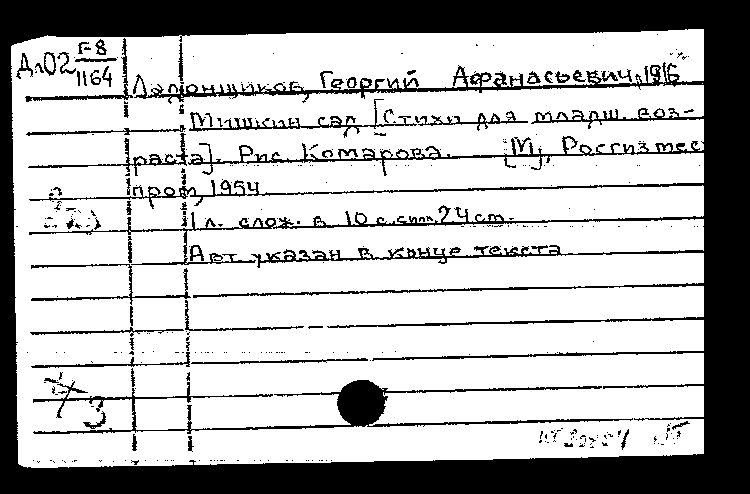 Дл02 Г-8
1164
Ладонщиков, Георгий Афанасьевич, 1916
Мишкин сад [Стихи для младш. воз-
раста]. Рис. Комарова. [М], Росгизмес
пром, 1954
1 л. слож. в 10 с. с илл. 24 см.
Авт. указан в конце текста
3